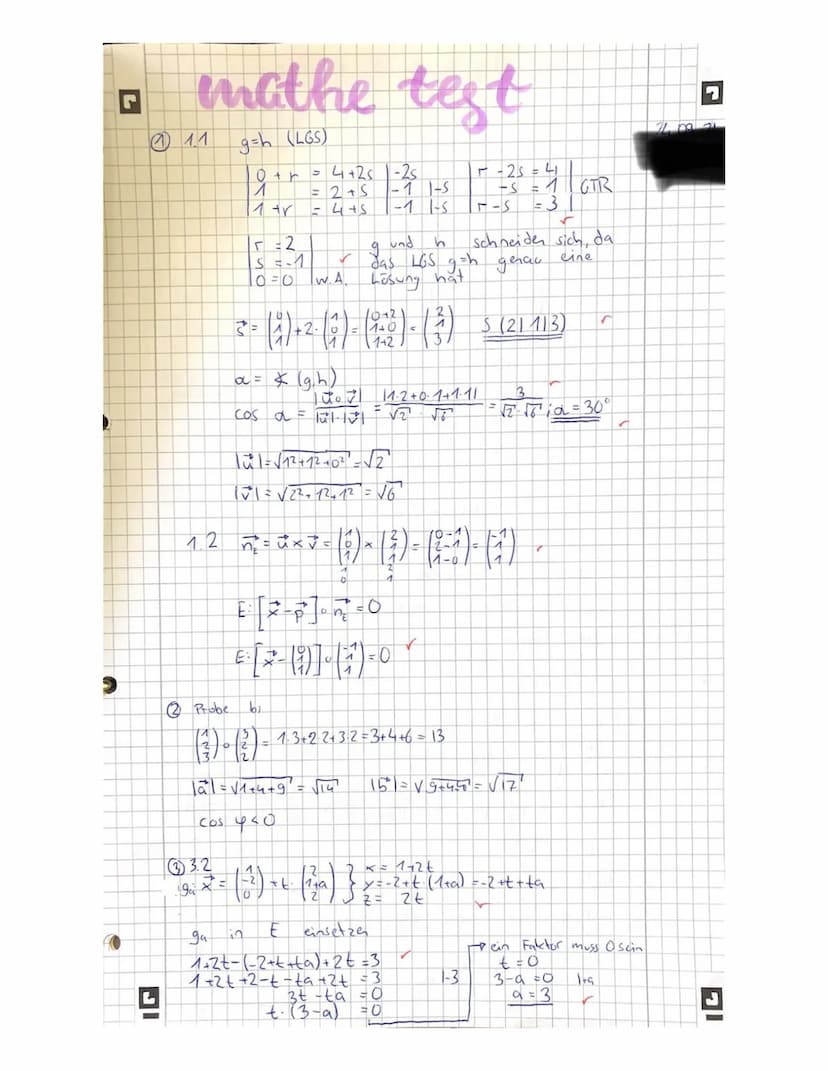 mathe test
① 1.1 g=h (LGS)
|0 + r = 4+2s| -2s |r - 2s = 4|
|1 = 2+s| -1 |-s | -s = 1| GTR
|1 + r = 4+s| -1 |-s |r - s = 3|
|r = 2| g und h schneiden sich, da
|s = -1| das LGS g=h genau eine
|0 = 0| w.A. Lösung hat
s⃗ = (0 1 1) + 2·(1 0 1) = (0+2 1+0 1+2) = (2 1 3) S (2|1|3)
α = ∢ (g,h)
cos α = |u⃗ ∘ v⃗| / |u⃗|·|v⃗| = |1·2+0·1+1·1| / √2 · √6 = 3 / √2 · √6 ; α = 30°
|u⃗| = √1²+1²+0² = √2
|v⃗| = √2²+1²+1² = √6
1.2 n⃗ε = u⃗ × v⃗ = (1 0 1) × (2 1 1) = (0-1 2-1 1-0) = (-1 1 1)
1 2
0 1
E: [x⃗ - p⃗] ∘ n⃗ε = 0
E: [x⃗ - (0 1 1)] ∘ (-1 1 1) = 0
② Probe b)
(1 2 3) ∘ (3 2 2) = 1·3+2·2+3·2 = 3+4+6 = 13
|a⃗| = √1+4+9 = √14 |b⃗| = √9+4+4 = √17
cos φ < 0
③ 3.2
ga: x⃗ = (1 -2 0) + t·(2 1+a 2) } x = 1+2t
y = -2+t·(1+a) = -2+t+ta
z = 2t
ga in E einsetzen
1+2t-(-2+t+ta)+2t = 3
1+2t+2-t-ta+2t = 3 |-3
3t - ta = 0
t·(3-a) = 0
ein Faktor muss 0 sein
t = 0
3-a = 0 |+a
a = 3